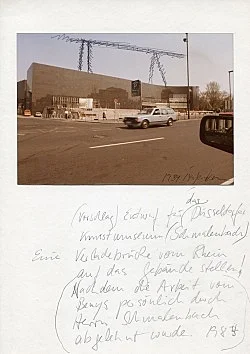 die
(Vorschlag) Entwurf für Düsseldorfer
Kunstmuseum (Schmalenbach)
Eine Verladebrücke vom Rhein
auf das Gebäude stellen
Nachdem die Arbeit von
Beuys persönlich durch
Herrn Schmalenbach
abgelehnt wurde. 198